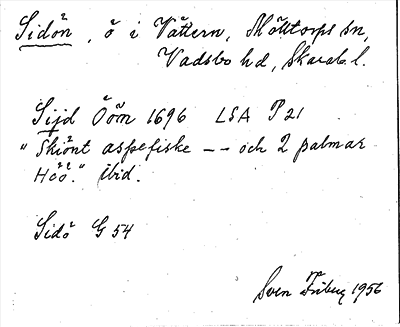 Sidön, ö i Vättern, Mölltorps sn,
Vadsbo hd, Skarab. l.
Sijd Öön 1696 LSA P 21
"Skiönt aspefiske -- och 2 palmar
Höö." ibid.
Sidö G 54
Sven Friberg 1956